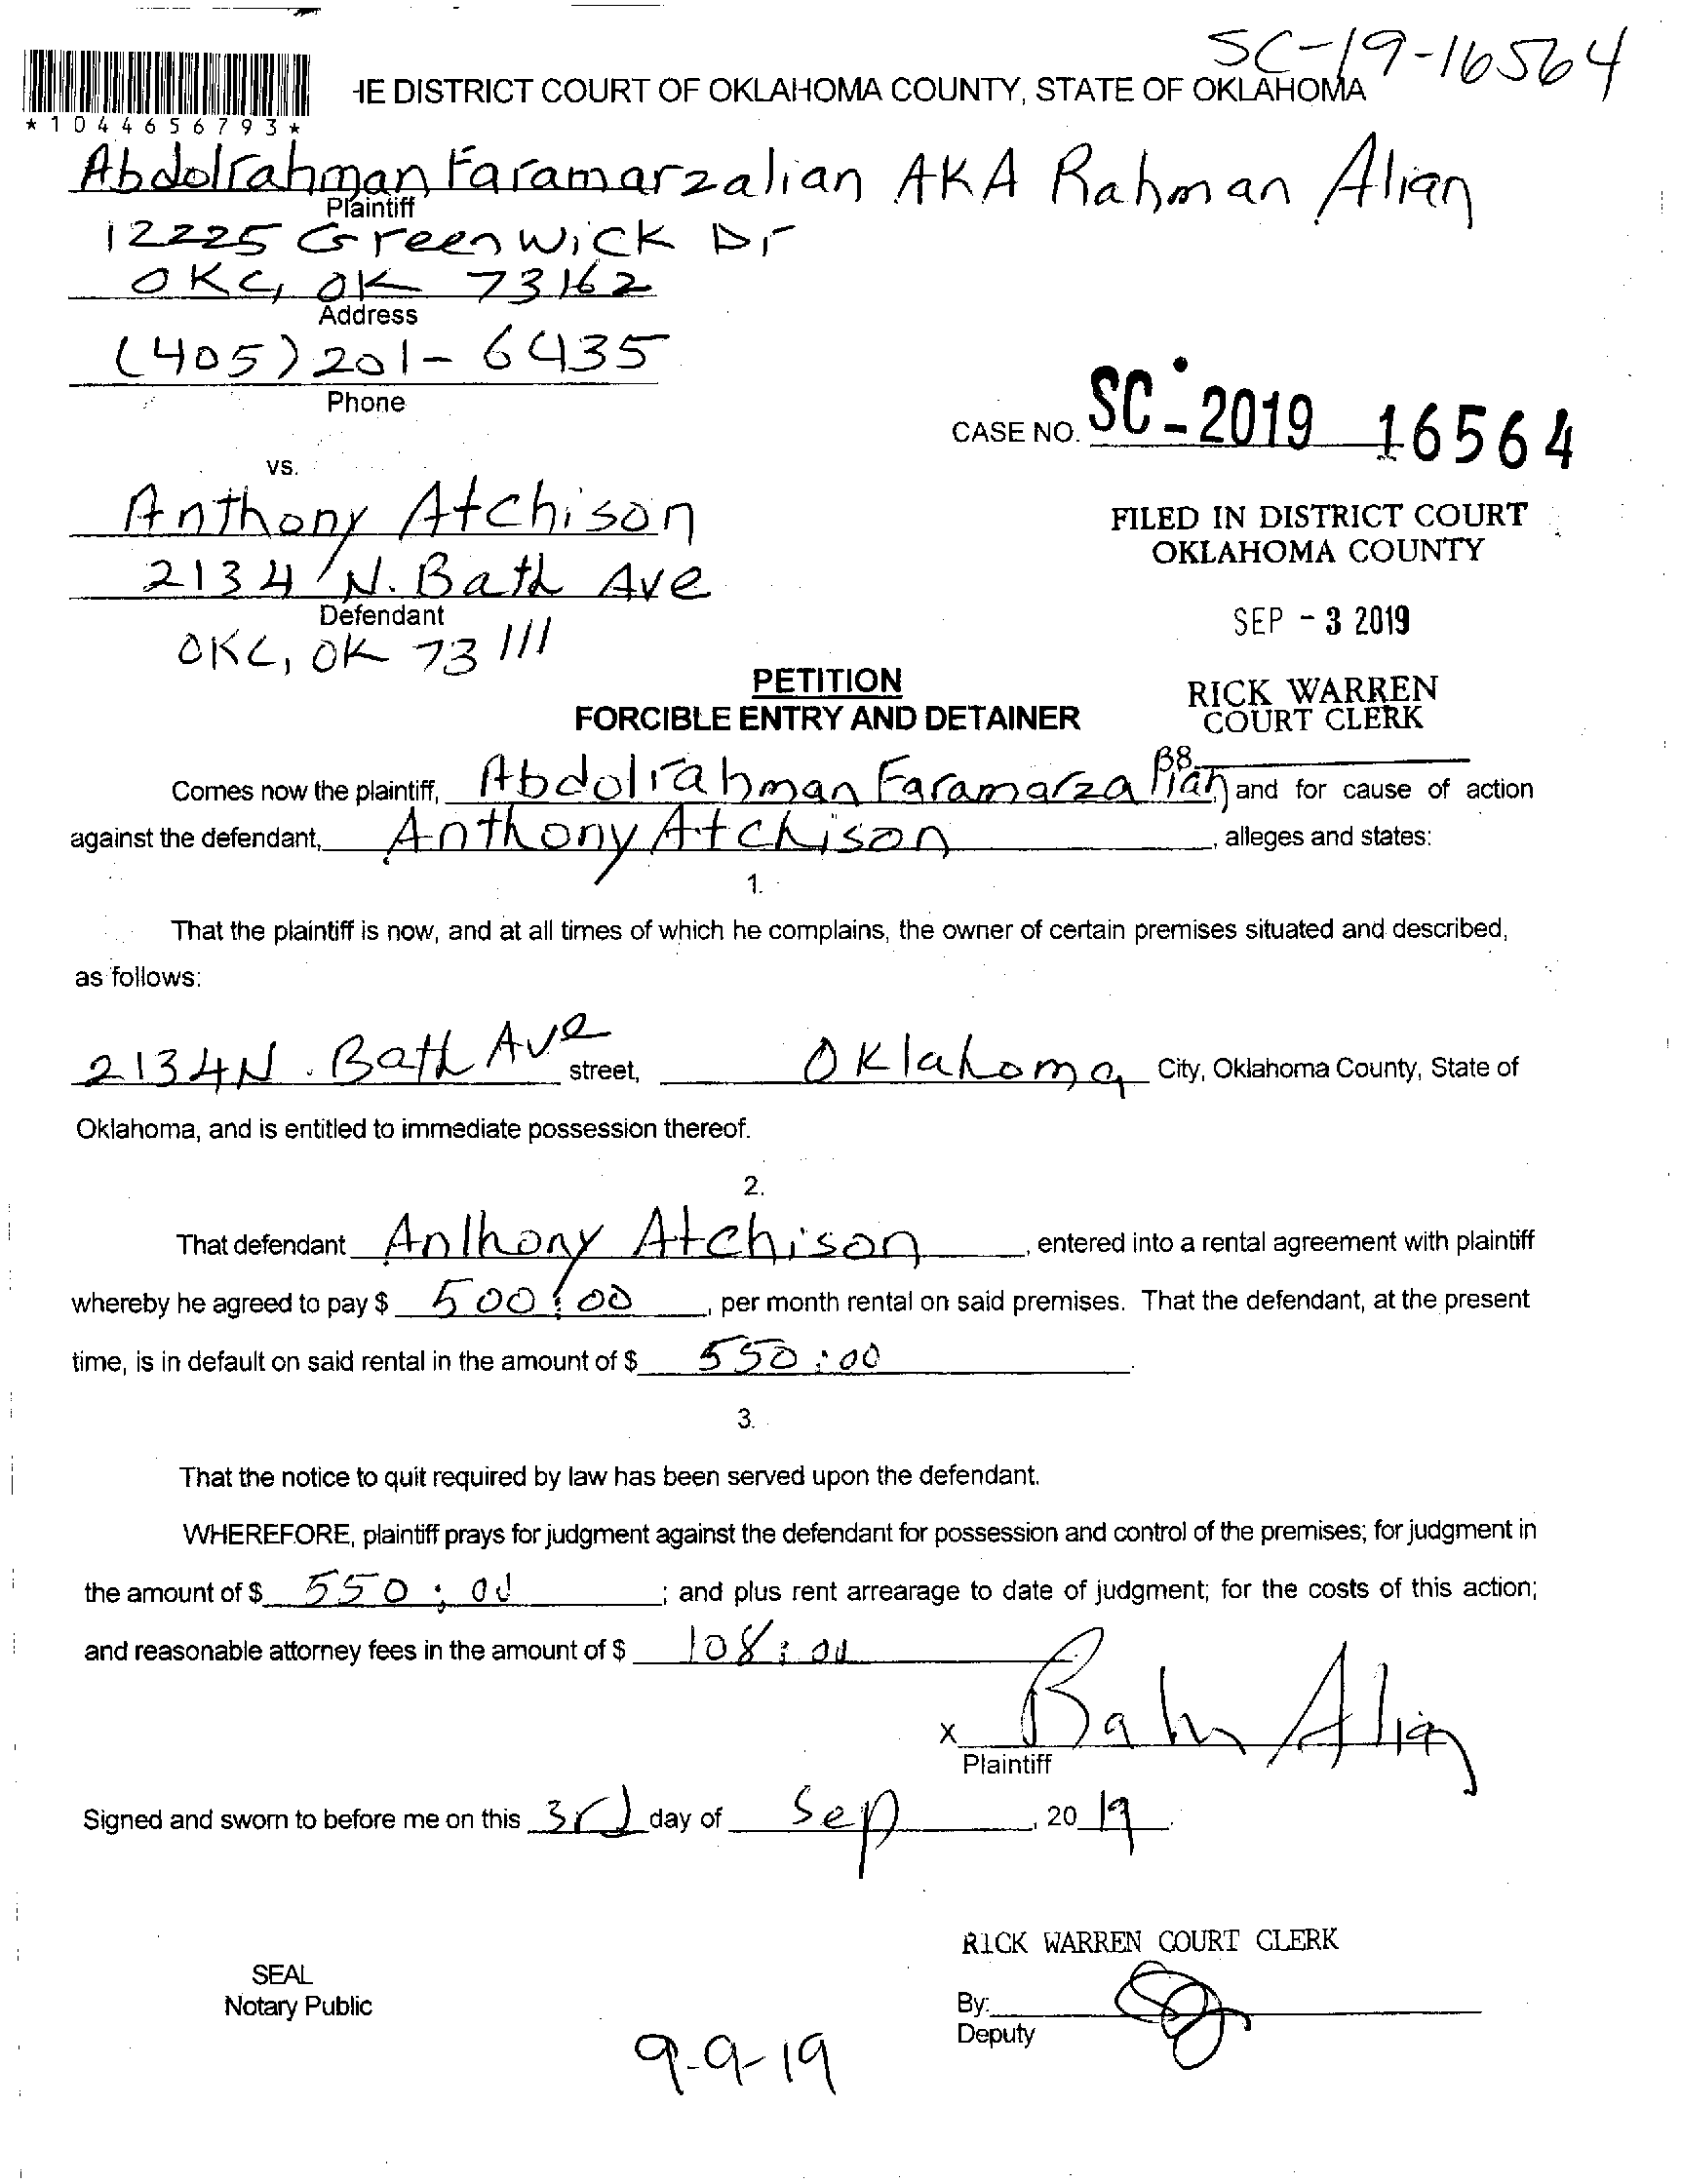 SC-19-16564
HE DISTRICT COURT OF OKLAHOMA COUNTY, STATE OF OKLAHOMA
*1044656793*
Abdolrahman Faramarzalian AKA Rahman Alian
Plaintiff
12225 Greenwick Dr
OKC, OK 73162
Address
(405) 201-6435
Phone
CASE NO. SC-2019 16564
vs.
Anthony Atchison
FILED IN DISTRICT COURT
OKLAHOMA COUNTY
2134 N. Bath Ave
Defendant
SEP - 3 2019
OKC, OK 73111
PETITION
RICK WARREN
COURT CLERK
FORCIBLE ENTRY AND DETAINER
Comes now the plaintiff, Abdolrahman Faramarzalian, and for cause of action
against the defendant, Anthony Atchison, alleges and states:
1.
That the plaintiff is now, and at all times of which he complains, the owner of certain premises situated and described,
as follows:
2134 N. Bath Ave street, Oklahoma City, Oklahoma County, State of
Oklahoma, and is entitled to immediate possession thereof.
2.
That defendant Anthony Atchison, entered into a rental agreement with plaintiff
whereby he agreed to pay $ 500:00, per month rental on said premises. That the defendant, at the present
time, is in default on said rental in the amount of $ 550:00.
3.
That the notice to quit required by law has been served upon the defendant.
WHEREFORE, plaintiff prays for judgment against the defendant for possession and control of the premises; for judgment in
the amount of $ 550:00; and plus rent arrearage to date of judgment; for the costs of this action;
and reasonable attorney fees in the amount of $ 108:00
x Rahm Alian
Plaintiff
Signed and sworn to before me on this 3rd day of Sep, 20 19.
RICK WARREN COURT CLERK
SEAL
Notary Public
By:
Deputy
9-9-19